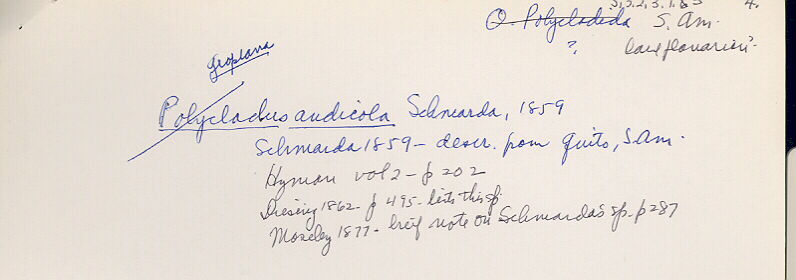 5, 5. 2, 3. 1. 8 5 4.
O. Polycladida S. Am.
?. land planarian?
geoplana
Polycladus andicola Schmarda, 1859
Schmarda 1859 - descr. from Quito, S. Am.
Hyman vol 2 - p 202
Diesing 1862 - p 495 - lists this sp.
Moseley 1877 - brief note on Schmarda's sp. p 287